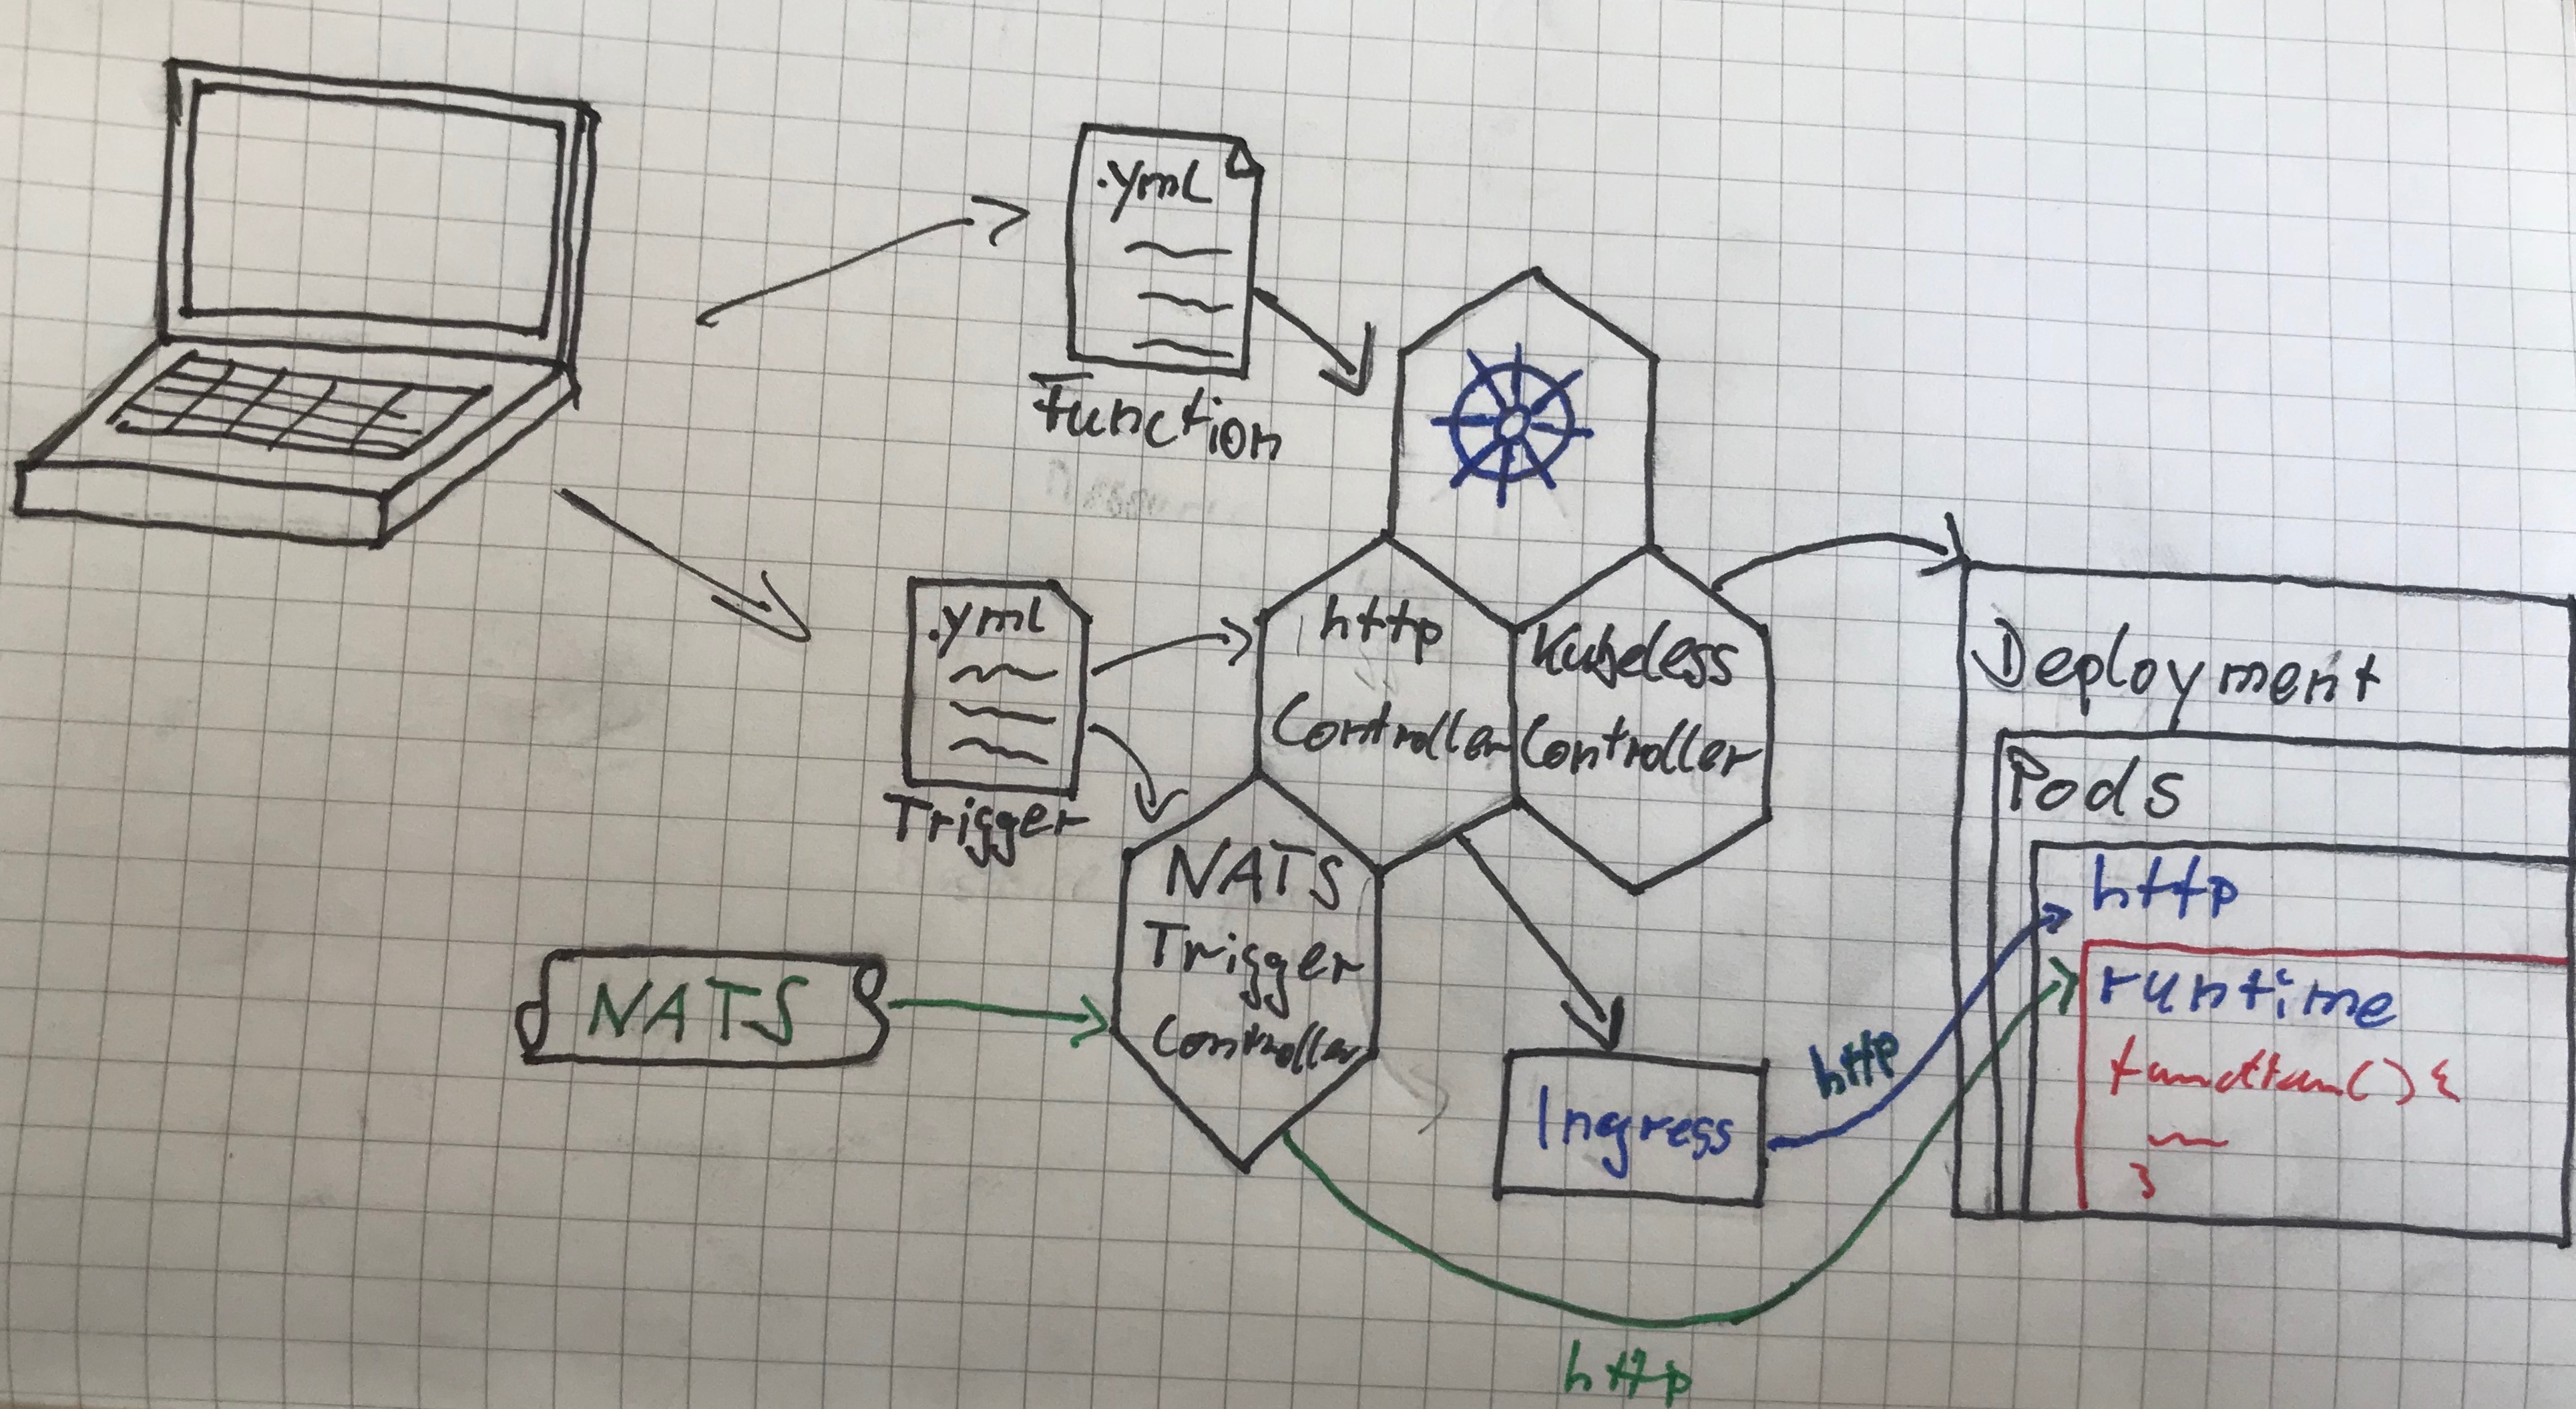 .yml
Function
.yml
Trigger
http
Controller
Kubeless
Controller
NATS
Trigger
Controller
NATS
Ingress
http
http
Deployment
Pods
http
runtime
function(){
}